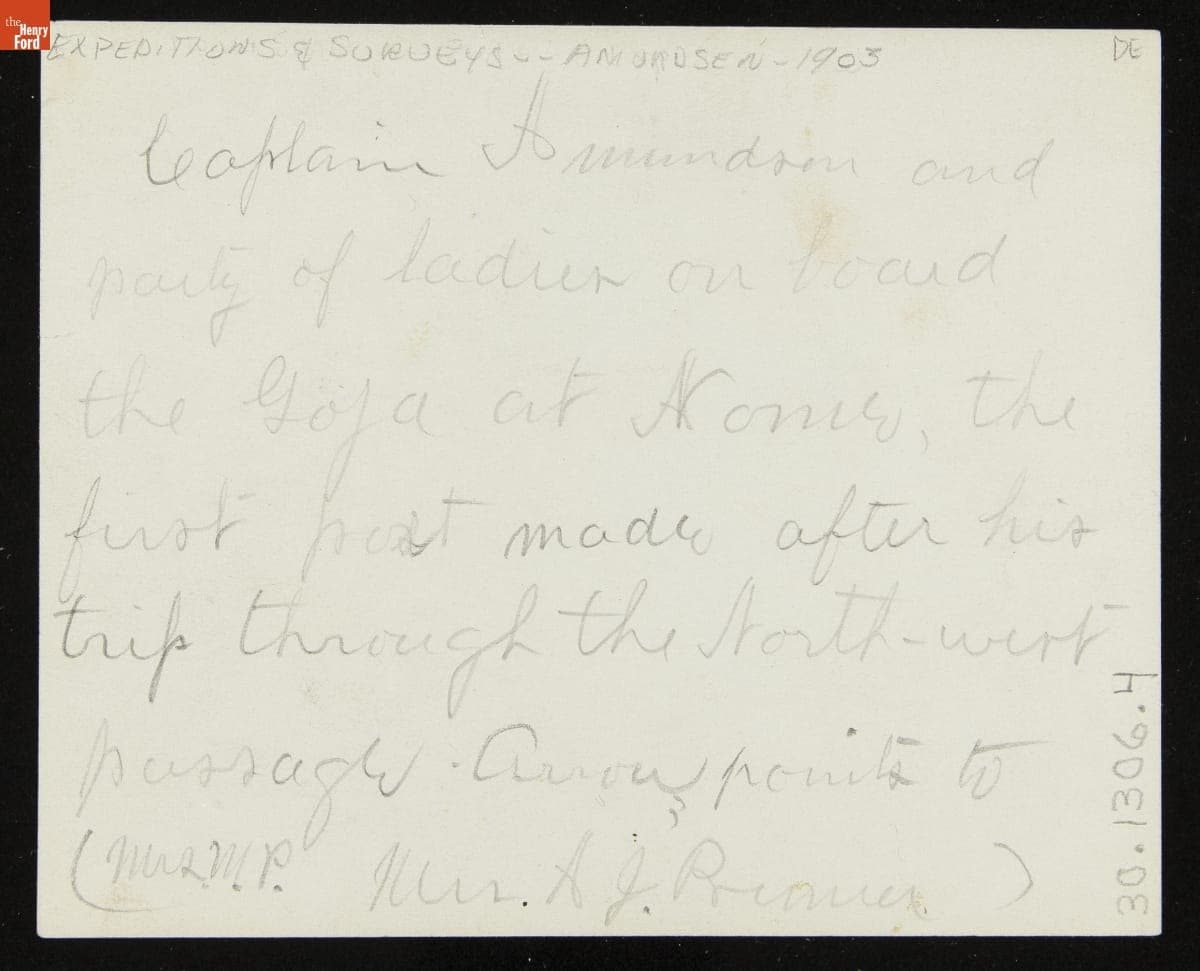 the
Henry
Ford
EXPEDITIONS & SURVEYS -- AMUNDSEN - 1903
DE
Captain Amundsen and
party of ladies on board
the Göja at Nome, the
first port made after his
trip through the North-west
passage. Arrow points to
(Mrs. M. P. Mrs. A J. )
30.1306.4